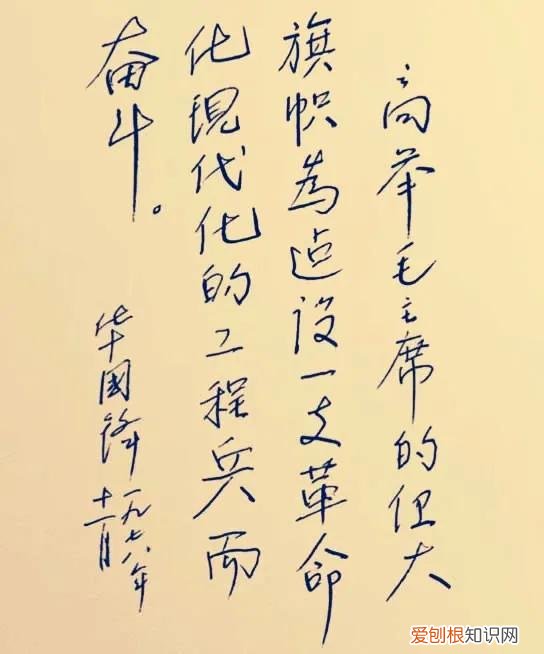 高举毛主席的伟大
旗帜為建设一支革命
化現代化的工程兵而
奋斗。
华國锋 一九七八年
十一月
爱刨根知识网